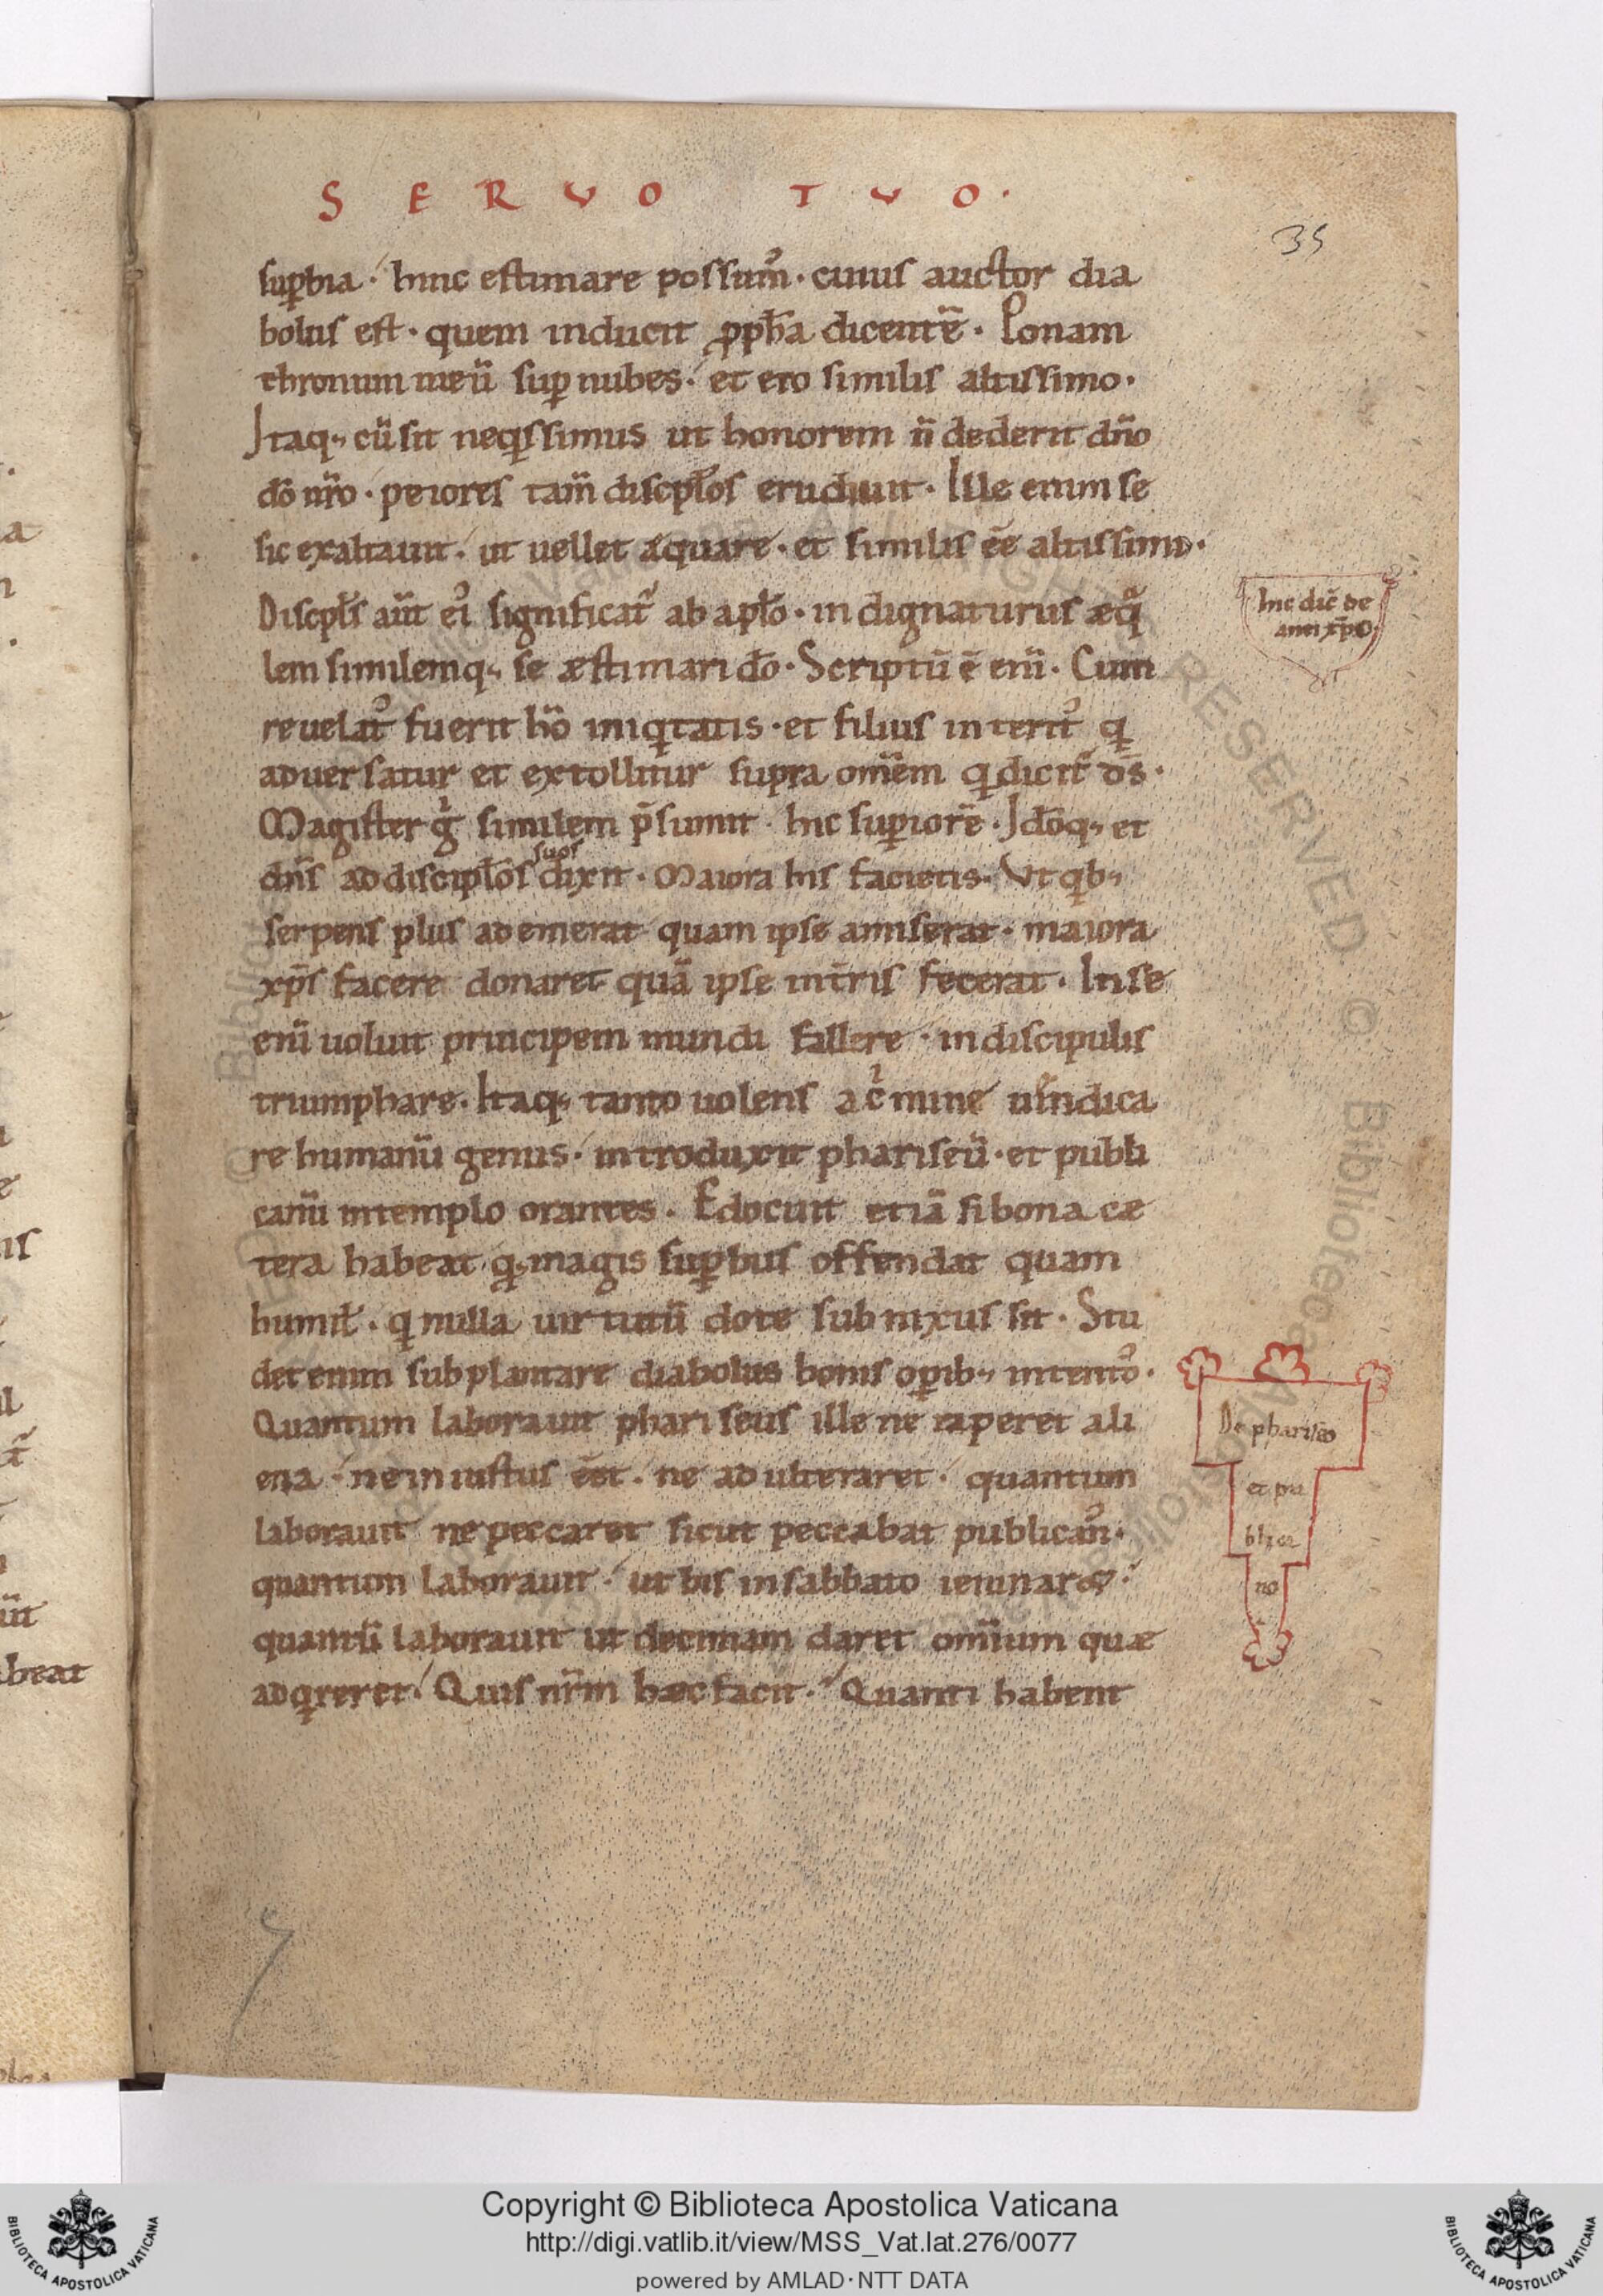 SERVO TVO.
35
suꝑbia. hinc estimare possum᷒. cuius auctor dia
bolus est. quem inducit ꝓph̄a dicentē. Ponam
thronum meū suꝑ nubes. et ero similis altissimo.
Itaq; cū sit neq̇ssimus ut honorem n̄ dederit dn̄o
dō nr̄o. peiores tam̄ discipl̄os erudiuit. Ille enim se
sic exaltauit. ut uellet æquare. et similis ēē altissimo.
Discipl̄s aūt ei᷒ significat᷑ ab apl̄o. indignaturus æqͣ
lem similemq; se æstimari dō. Scriptū ē eni̅. Cum
reuelat᷒ fuerit hō iniq̇tatis. et filius interit᷒ q̇
aduersatur et extollitur supra om̄em q̇ dicit᷑ ds̄.
Magister gͥ similem p̄sumit. hic suꝑiorē. Idōq; et
dn̄s ad discipl̄os suos dixit. Maiora his facietis. Vt q̇b;
serpens plus ademerat quam ipse amiserat. maiora
xp̄s facere donaret quā ipse in tr̄is fecerat. In se
eni̅ uoluit principem mundi fallere. in discipulis
triumphare. Itaq; tanto uolens a cͥmine uindica
re humanū genus. introduxit phariseū. et publi
canū in templo orantes. Edocuit etiā si bona cæ
tera habeat q. magis suꝑbus offendat quam
humil̄. q nulla uirtutū dote subnixus sit. Stu
det enim subplantare diabolus bonis oꝑib; intento᷒.
Quantum laborauit phariseus ille ne raperet ali
ena. ne iniustus ēēt. ne adulteraret. quantum
laborauit ne peccaret sicut peccabat publican᷒.
quantum laborauit. ut bis in sabbato ieiunaret.
quantū laborauit ut decimam daret omnium quæ
adq̇reret. Quis nr̄m hæc facit. Quanti habent
hic dic̄ de
anti xp̄o.
De phariseo
et pu
blica
no
Copyright © Biblioteca Apostolica Vaticana
http://digi.vatlib.it/view/MSS_Vat.lat.276/0077
powered by AMLAD·NTT DATA
BIBLIOTECA APOSTOLICA VATICANA
BIBLIOTECA APOSTOLICA VATICANA